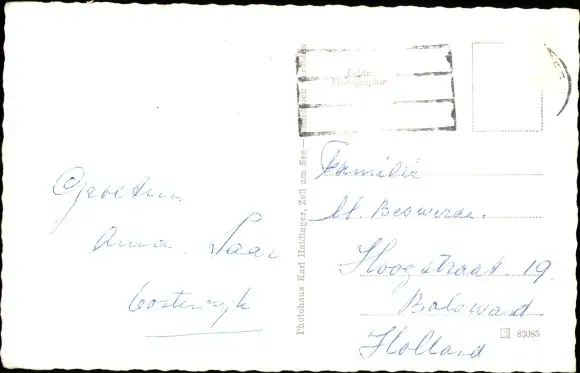 Groeten
Anna. Saar
Oostenrijk
Photohaus Karl Haidinger, Zell am See
Echte
Photographie
Familie
M. Beswerda.
Hoogstraat 19.
Bolsward
Holland
83085